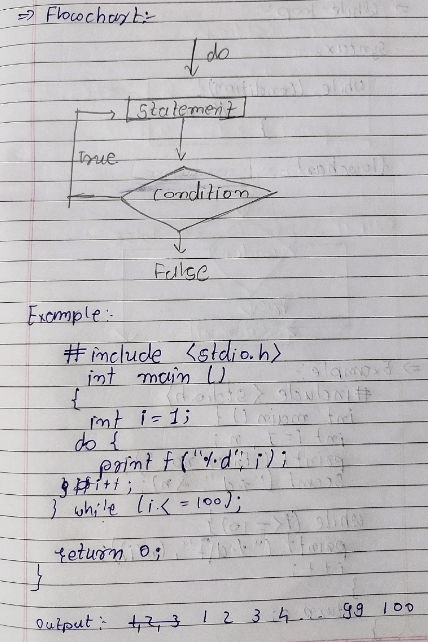 ⇒ Flowchart:-
do
Statement
True
Condition
False
Example:-
#include <stdio.h>
int main ()
{
int i = 1;
do {
printf ("%d", i);
i++;
} while (i <= 100);
return 0;
}
Output:- 1, 2, 3 1 2 3 4 . . . 99 100